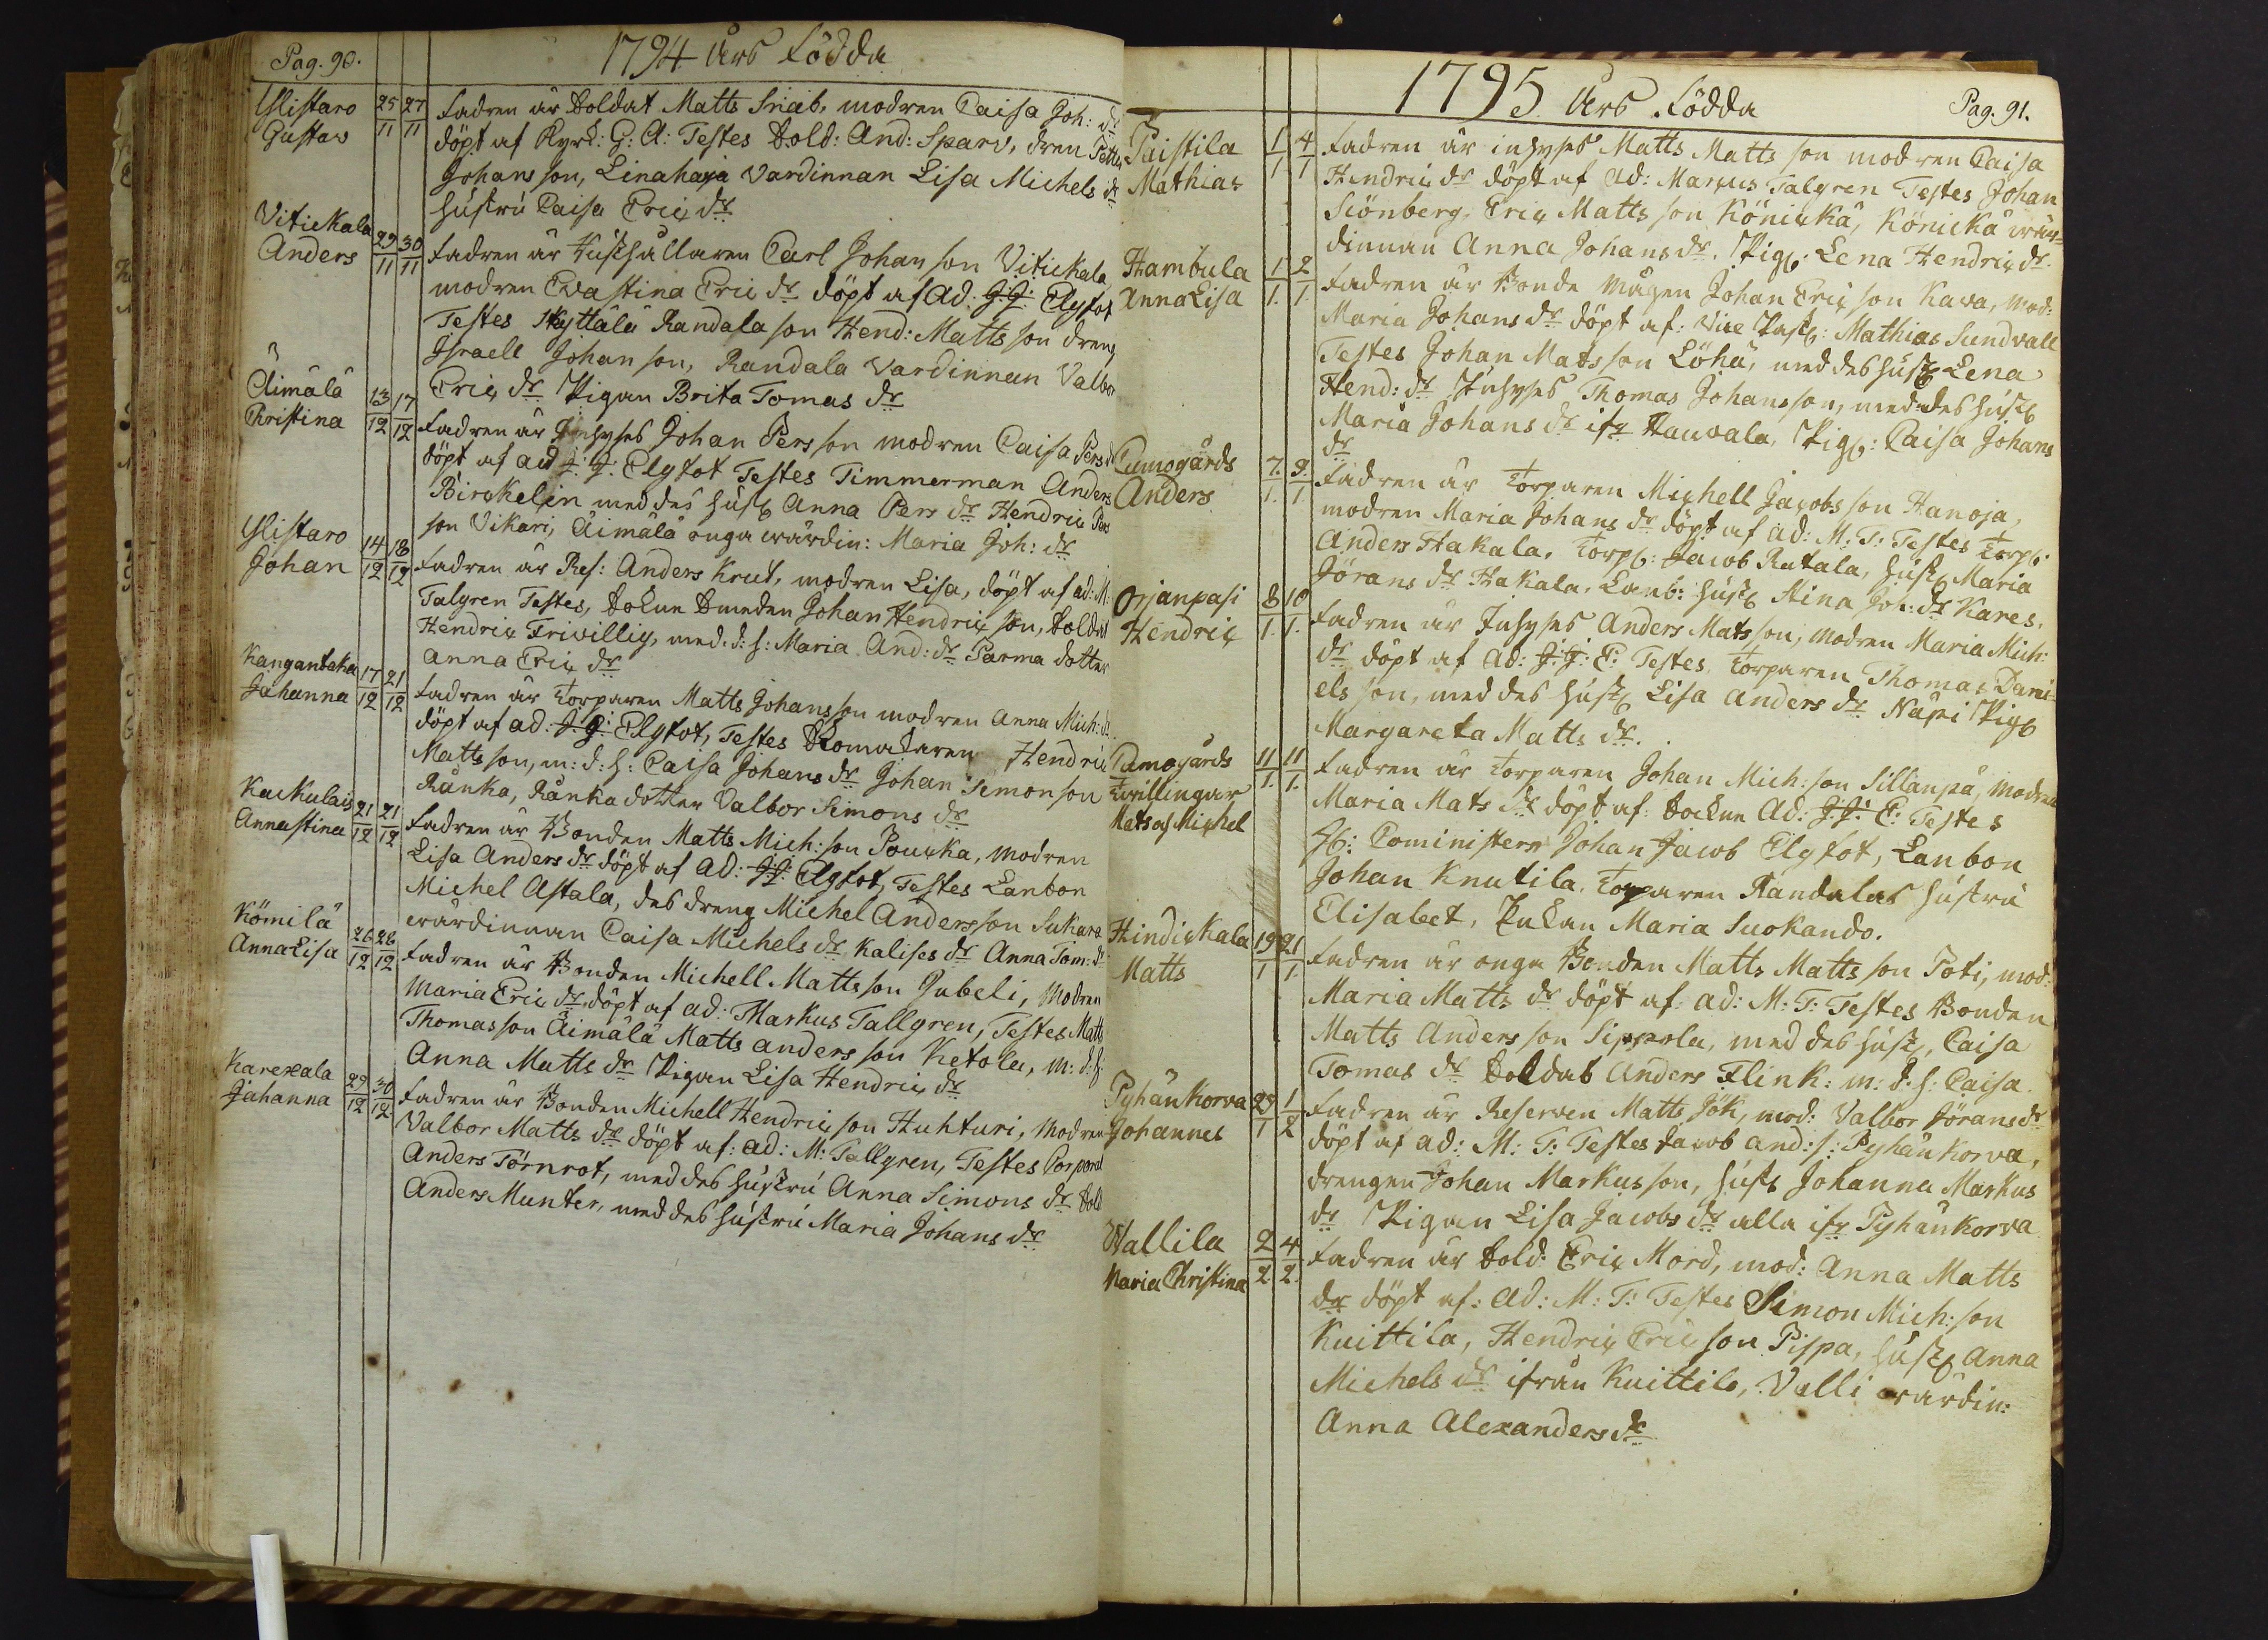 Pag. 90.
1794 Års Födda
Ylistaro 25/11 27/11 Fadren är Soldat Matts Snäb, modren Caisa Joh: dr
Gustav döpt af Kyrk: G: A: Testes Sold: And: Sparv, dren Petter
Johans son, Linahaja Vardinnan Lisa Michels dr
hustru Caisa Eric dr
Vitickala 29/11 30/11 Fadren är Hushållaren Carl Johan son Vitickala
Anders modren Evastina Eric dr döpt af Ad: J. J: Elgfot
Testes Hyttälä Randala son Hend: Matts son dreng
Israell Johan son, Randala Vardinnan Valbor
Eric dr Pigan Brita Tomas dr
Äimälä 13/12 17/12 Fadren är Inhyses Johan Pers son modren Caisa Pers d
Christina döpt af ad J: J: Elgfot Testes Timmerman Anders
Birckelin med des hust Anna Pers dr Hendric Pers
son Vikari, Äimälä unga wärdin: Maria Joh: dr
Ylistaro 14/12 18/12 Fadren är Res: Anders Knut, modren Lisa, döpt af ad: M.
Johan Talgren Testes, Sokne Smeden Johan Hendric son, Soldat
Hendric Frivillig, med. d: h: Maria And: dr Parma dotter
Anna Eric dr
Kangantaka 17/12 21/12 Fadren är Torparen Matts Johansson modren Anna Mich: dr
Johanna döpt af ad: J. J: Elgfot, Testes Skomakaren Hendric
Matts son, m: d: h: Caisa Johans dr Johan Simon son
Ränka, Ränka dotter Valbor Simons dr
Kackulais 21/12 21/12 Fadren är Bonden Matts Mich: son Poucka, modren
Annastina Lisa Anders dr döpt af Ad: J. J: Elgfot, Testes Lanbon
Michel Astala, des dreng Michel Andersson Sukara
wärdinnan Caisa Michels dr Kalises dr Anna Tom: dr
Kömilä 26/12 28/12 Fadren är Bonden Michell Mattsson Jubeli, Modren
Anna Lisa Maria Eric dr döpt af ad: Markus Tallgren, Testes Matts
Thomas son Äimälä Matts Anders son Ketola, m: d: h:
Anna Matts dr Pigan Lisa Hendric dr
Karexala 29/12 30/12 Fadren är Bonden Michell Hendric son Huhturi, Modren
Johanna Valbor Matts dr döpt af: ad: M: Tallgren, Testes Corporal
Anders Törnrot, med des hustru Anna Simons dr Sold
Anders Munter, med des hustru Maria Johans dr
1795 Års Födda
Pag. 91.
Paistila 1/1 4/1 Fadren är inhyses Matts Matts son modren Caisa
Mathias Hendric dr döpt af Ad: Marcus Talgren Testes Johan
Siönberg, Eric Matts son Könickä, Könickä wär=
dinnan Anna Johans dr. Pig: Lena Hendric dr
Hambula 1/1 2/1 Fadren är Bonde Mågen Johan Eric son Kava, mod:
Anna Lisa Maria Johans dr döpt af: Vice Past: Mathias Sundvall
Testes Johan Matsson Löhä, med des hust Lena
Hend: dr Inhyses Thomas Johansson, med des hust
Maria Johans dr ifr Hauvala, Pig: Caisa Johans
dr
Cumogårds 7/1 9/1 Fadren är Torparen Michell Jacobs son Hanoja,
Anders modren Maria Johans dr döpt af ad: M: T: Testes Torp:
Anders Hakala, Torp: Jacob Rutala, hust Maria
Jörans dr Hakala, Lanb: hust Stina Joh: dr Kares.
Orjanpasi 8/1 10/1 Fadren är Inhyses Anders Matsson, modren Maria Mich:
Hendric dr döpt af Ad: J: J: E: Testes Torparen Thomas Dani=
els son, med des hust Lisa Anders dr Näpi Pig
Margareta Matts dr.
Cumogårds 11/1 11/1 Fadren är Torparen Johan Mich: son Sillanpä, modren
Twillingar Maria Mats dr döpt af: Sockne Ad: J: J: E: Testes
Mats o Michel H: Cominister Johan Jacob Elgfot, Lanbon
Johan Knutila. Torparen Randalas hustru
Elisabet, Pukan Maria Suokando.
Hindickala 19/1 21/1 Fadren är unga Bonden Matts Matts son Poti, mod:
Matts Maria Matts dr döpt af: ad: M: T: Testes Bonden
Matts Anders son Sippola, med des hust, Caisa
Tomas dr Soldat Anders Flink: m: d: h: Caisa.
Pyhänkorva 29/1 1/2 Fadren är Reserven Matts Jök, mod: Valbor Jörans dr
Johannes döpt af ad: M: T: Testes Jacob And: s: Pyhänkorva,
drengen Johan Markus son, hust Johanna Markus
dr Pigan Lisa Jacobs dr alla ifr Pyhänkorva
Vallila 2/2 4/2 Fadren är Sold: Eric Mord, mod: Anna Matts
Maria Christina dr döpt af: Ad: M: T: Testes Simon Mich: son
Knittila, Hendric Eric son Pispa, hust Anna
Michels dr ifrån Knittilo, Valli wärdin:
Anna Alexanders dr